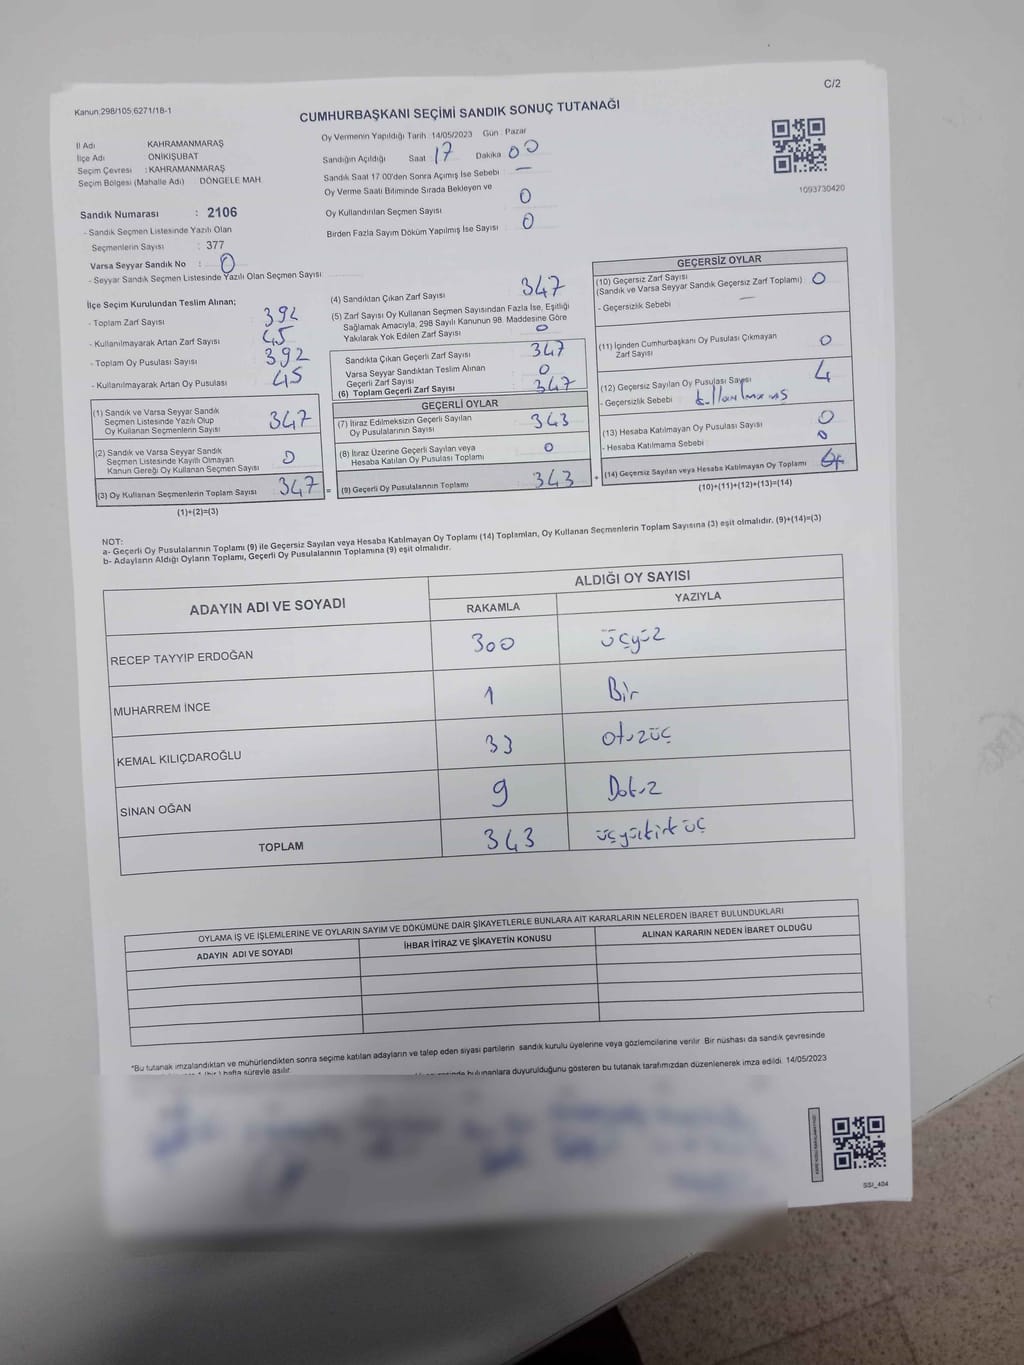 C/2
Kanun:298/105,6271/18-1
CUMHURBAŞKANI SEÇİMİ SANDIK SONUÇ TUTANAĞI
İl Adı KAHRAMANMARAŞ
İlçe Adı ONİKİŞUBAT
Seçim Çevresi : KAHRAMANMARAŞ
Seçim Bölgesi (Mahalle Adı) DÖNGELE MAH.
Oy Vermenin Yapıldığı Tarih 14/05/2023 Gün Pazar
Sandığın Açıldığı Saat 17 Dakika 00
Sandık Saat 17:00'den Sonra Açımış İse Sebebi —
Oy Verme Saati Bitiminde Sırada Bekleyen ve
Oy Kullandırılan Seçmen Sayısı 0
Birden Fazla Sayım Döküm Yapılmış İse Sayısı 0
1093730420
Sandık Numarası : 2106
- Sandık Seçmen Listesinde Yazılı Olan
Seçmenlerin Sayısı : 377
Varsa Seyyar Sandık No : 0
- Seyyar Sandık Seçmen Listesinde Yazılı Olan Seçmen Sayısı
İlçe Seçim Kurulundan Teslim Alınan;
- Toplam Zarf Sayısı 392
- Kullanılmayarak Artan Zarf Sayısı 45
- Toplam Oy Pusulası Sayısı 392
- Kullanılmayarak Artan Oy Pusulası 45
(1) Sandık ve Varsa Seyyar Sandık
Seçmen Listesinde Yazılı Olup
Oy Kullanan Seçmenlerin Sayısı 347
(2) Sandık ve Varsa Seyyar Sandık
Seçmen Listesinde Kayıtlı Olmayan
Kanun Gereği Oy Kullanan Seçmen Sayısı 0
(3) Oy Kullanan Seçmenlerin Toplam Sayısı 347 =
(1)+(2)=(3)
(4) Sandıktan Çıkan Zarf Sayısı 347
(5) Zarf Sayısı Oy Kullanan Seçmen Sayısından Fazla İse, Eşitliği
Sağlamak Amacıyla, 298 Sayılı Kanunun 98. Maddesine Göre
Yakılarak Yok Edilen Zarf Sayısı 0
Sandıkta Çıkan Geçerli Zarf Sayısı 347
Varsa Seyyar Sandıktan Teslim Alınan
Geçerli Zarf Sayısı 0
(6) Toplam Geçerli Zarf Sayısı 347
GEÇERLİ OYLAR
(7) İtiraz Edilmeksizin Geçerli Sayılan
Oy Pusulalarının Sayısı 343
(8) İtiraz Üzerine Geçerli Sayılan veya
Hesaba Katılan Oy Pusulası Toplamı 0
(9) Geçerli Oy Pusulalarının Toplamı 343 +
GEÇERSİZ OYLAR
(10) Geçersiz Zarf Sayısı
(Sandık ve Varsa Seyyar Sandık Geçersiz Zarf Toplamı) 0
- Geçersizlik Sebebi —
(11) İçinden Cumhurbaşkanı Oy Pusulası Çıkmayan
Zarf Sayısı 0
(12) Geçersiz Sayılan Oy Pusulası Sayısı 4
- Geçersizlik Sebebi kullanılmamış
(13) Hesaba Katılmayan Oy Pusulası Sayısı 0
- Hesaba Katılmama Sebebi 0
(14) Geçersiz Sayılan veya Hesaba Katılmayan Oy Toplamı 4
(10)+(11)+(12)+(13)=(14)
NOT:
a- Geçerli Oy Pusulalarının Toplamı (9) ile Geçersiz Sayılan veya Hesaba Katılmayan Oy Toplamı (14) Toplamları, Oy Kullanan Seçmenlerin Toplam Sayısına (3) eşit olmalıdır. (9)+(14)=(3)
b- Adayların Aldığı Oyların Toplamı, Geçerli Oy Pusulalarının Toplamına (9) eşit olmalıdır.
ADAYIN ADI VE SOYADI
ALDIĞI OY SAYISI
RAKAMLA YAZIYLA
RECEP TAYYİP ERDOĞAN 300 üçyüz
MUHARREM İNCE 1 Bir
KEMAL KILIÇDAROĞLU 33 otuzüç
SİNAN OĞAN 9 Dokuz
TOPLAM 343 üçyükırküç
OYLAMA İŞ VE İŞLEMLERİNE VE OYLARIN SAYIM VE DÖKÜMÜNE DAİR ŞİKAYETLERLE BUNLARA AİT KARARLARIN NELERDEN İBARET BULUNDUKLARI
ADAYIN ADI VE SOYADI İHBAR İTİRAZ VE ŞİKAYETİN KONUSU ALINAN KARARIN NEDEN İBARET OLDUĞU
*Bu tutanak imzalandıktan ve mühürlendikten sonra seçime katılan adayların ve talep eden siyasi partilerin sandık kurulu üyelerine veya gözlemcilerine verilir. Bir nüshası da sandık çevresinde
1 (bir) hafta süreyle asılır.
bulunanlara duyurulduğunu gösteren bu tutanak tarafımızdan düzenlenerek imza edildi. 14/05/2023
SSI_404